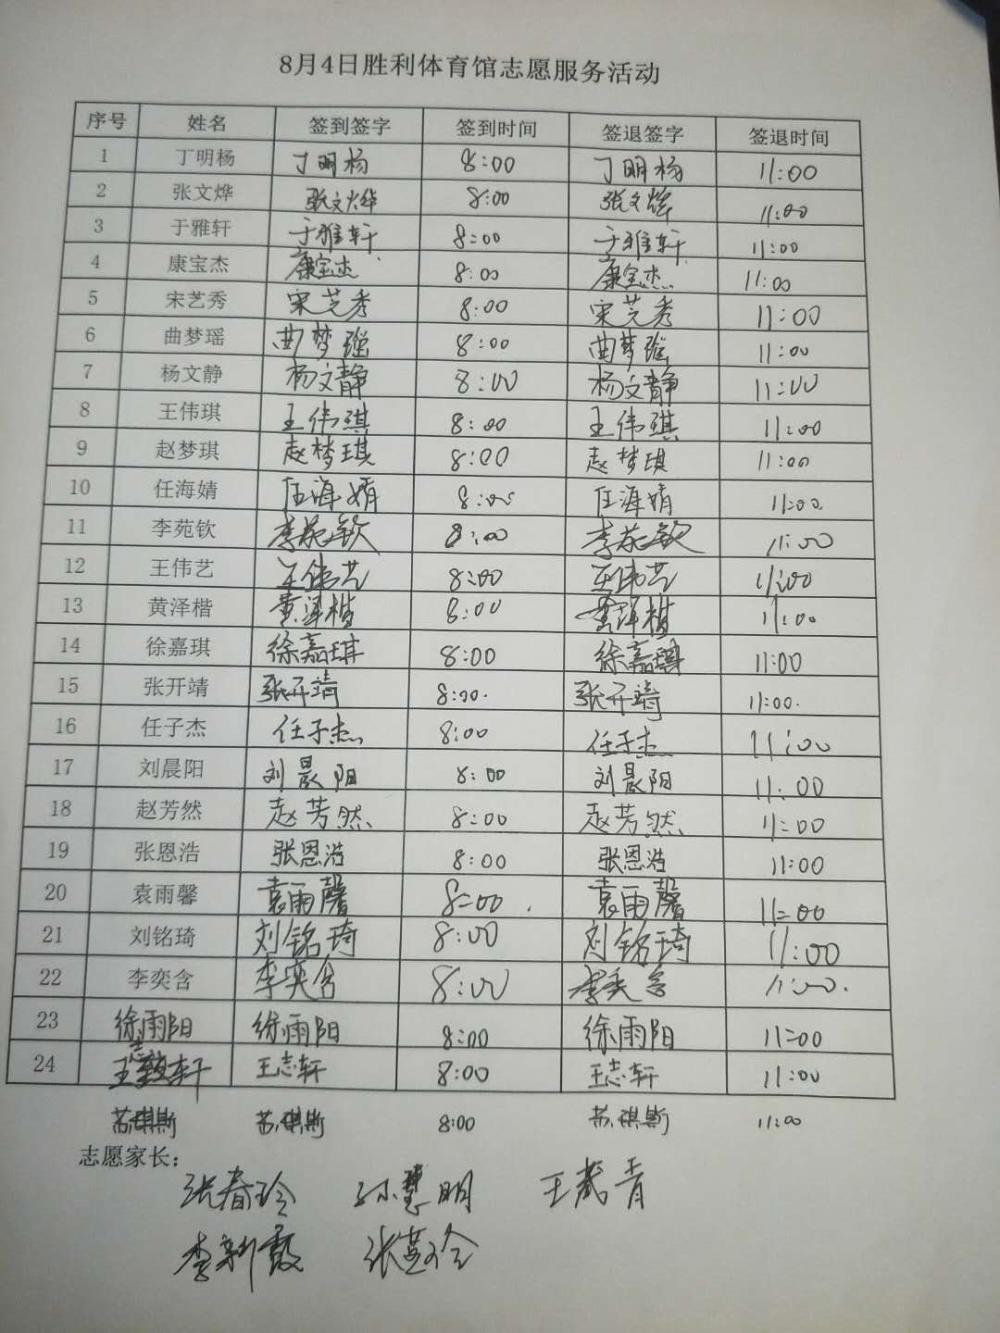 8月4日胜利体育馆志愿服务活动
序号 姓名 签到签字 签到时间 签退签字 签退时间
1 丁明杨 丁明杨 8:00 丁明杨 11:00
2 张文烨 张文烨 8:00 张文烨 11:00
3 于雅轩 于雅轩 8:00 于雅轩 11:00
4 康宝杰 康宝杰 8:00 康宝杰 11:00
5 宋艺秀 宋艺秀 8:00 宋艺秀 11:00
6 曲梦瑶 曲梦瑶 8:00 曲梦瑶 11:00
7 杨文静 杨文静 8:00 杨文静 11:00
8 王伟琪 王伟琪 8:00 王伟琪 11:00
9 赵梦琪 赵梦琪 8:00 赵梦琪 11:00
10 任海婧 任海婧 8:00 任海婧 11:00
11 李苑钦 李苑钦 8:00 李苑钦 11:00
12 王伟艺 王伟艺 8:00 王伟艺 11:00
13 黄泽楷 黄泽楷 8:00 黄泽楷 11:00
14 徐嘉琪 徐嘉琪 8:00 徐嘉琪 11:00
15 张开靖 张开靖 8:00. 张开靖 11:00.
16 任子杰 任子杰 8:00 任子杰 11:00
17 刘晨阳 刘晨阳 8:00 刘晨阳 11:00
18 赵芳然 赵芳然 8:00 赵芳然 11:00
19 张恩浩 张恩浩 8:00 张恩浩 11:00
20 袁雨馨 袁雨馨 8:00 袁雨馨 11:00
21 刘铭琦 刘铭琦 8:00 刘铭琦 11:00
22 李奕含 李奕含 8:00 李奕含 11:00.
23 徐雨阳 徐雨阳 8:00 徐雨阳 11:00
24 王志轩 王志轩 8:00 王志轩 11:00
苏琪斯 苏琪斯 8:00 苏琪斯 11:00
志愿家长：
张春玲 孙慧明 王武青
李新霞 张燕玲